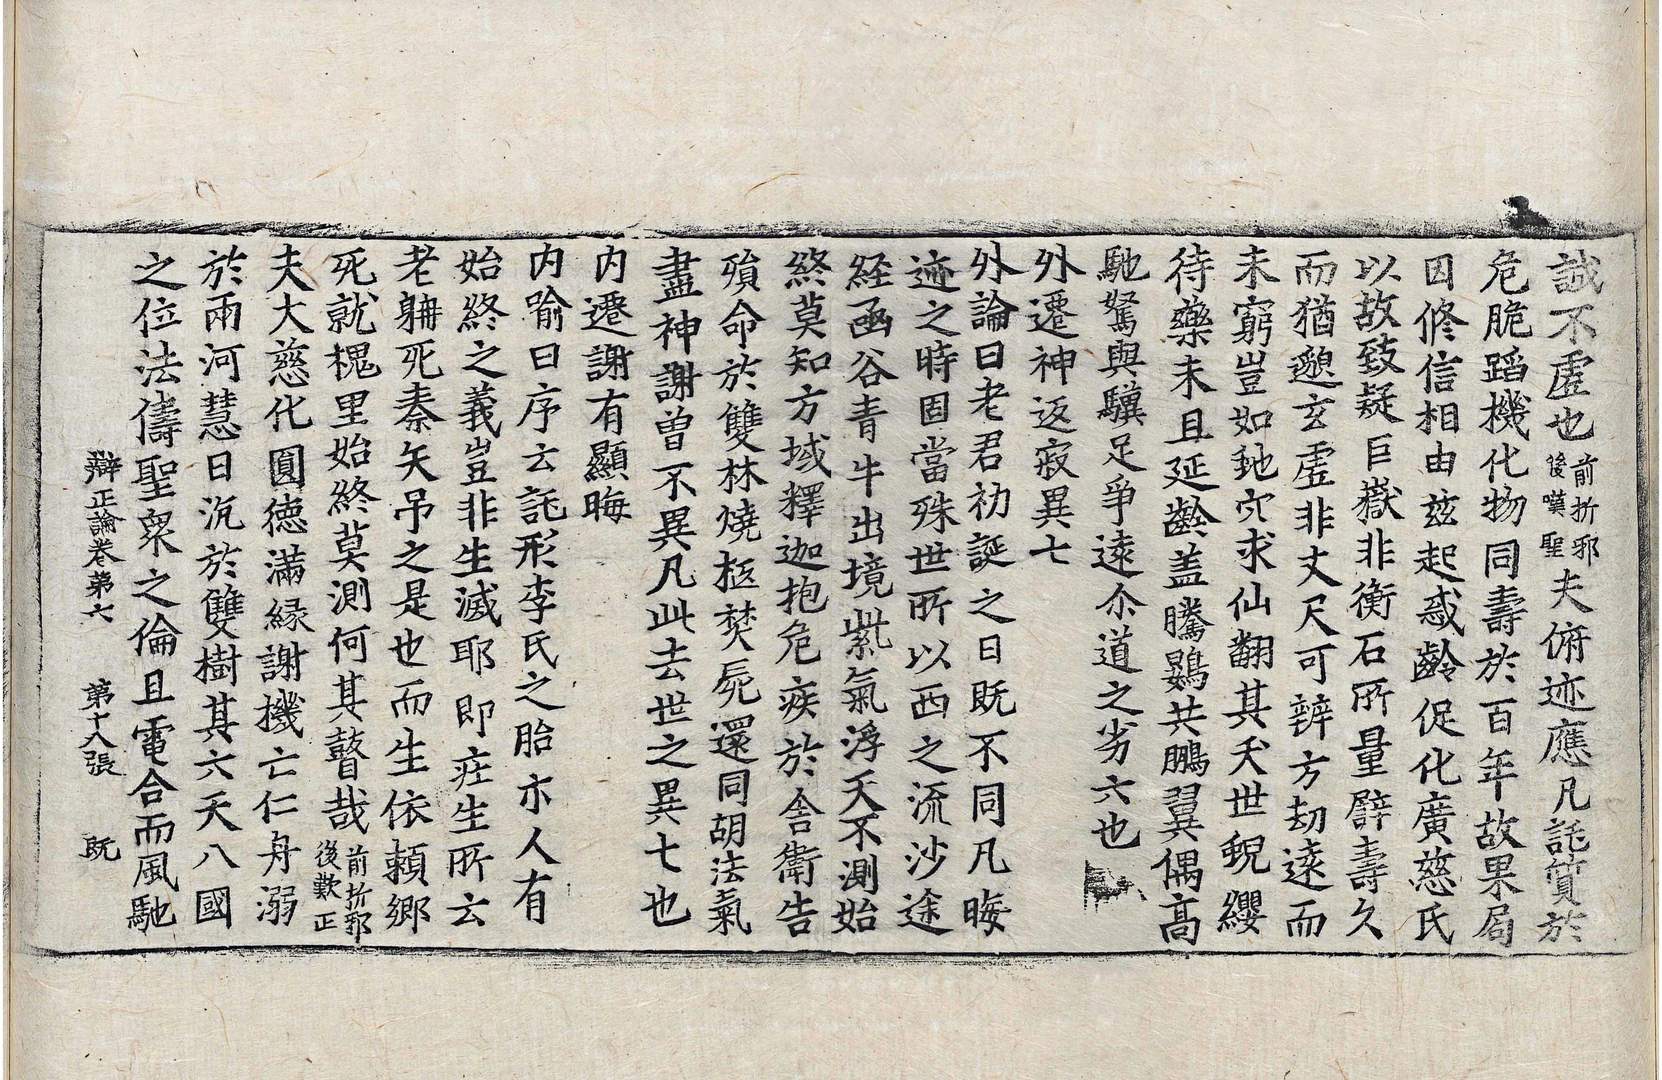 誠不虛也前折邪後嘆聖夫俯迹應凡託質於
危脆蹈機化物同壽於百年故果局
因修信相由茲起惑齡促化廣慈氏
以故致疑巨嶽非衡石所量辟壽久
而猶邈玄虛非丈尺可辨方劫遠而
未窮豈如虵穴求仙翻其夭世貌纓
待藥未且延齡盖騰鷃共鵬翼偶高
馳駑與驥足爭遠尒道之劣六也
外遷神返寂異七
外論曰老君初誕之日既不同凡晦
迹之時固當殊世所以西之流沙途
経凾谷青牛出境紫氣浮天不測始
終莫知方域釋迦抱危疾於舍衛告
殞命於雙林燒柩焚屍還同胡法氣
盡神謝曾不異凡此去世之異七也
内遷謝有顯晦
内喻曰序云託形李氏之胎示人有
始終之義豈非生滅耶即莊生所云
老聃死秦矢吊之是也而生依頼鄉
死就槐里始終莫測何其瞽哉前折邪後歎正
夫大慈化圓德滿緣謝機亡仁舟溺
於兩河慧日沉於雙樹其六天八國
之位法儔聖衆之倫且電合而風馳
辯正論卷第六　第十八張　旣